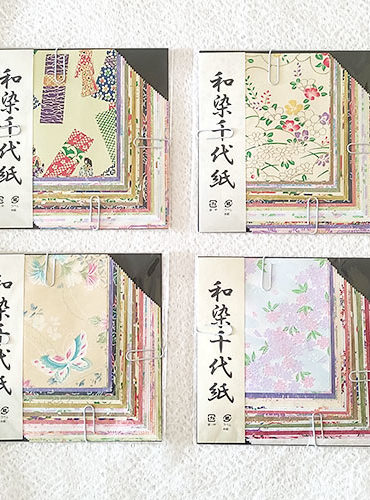 和染千代紙
和染千代紙
和染千代紙
和染千代紙